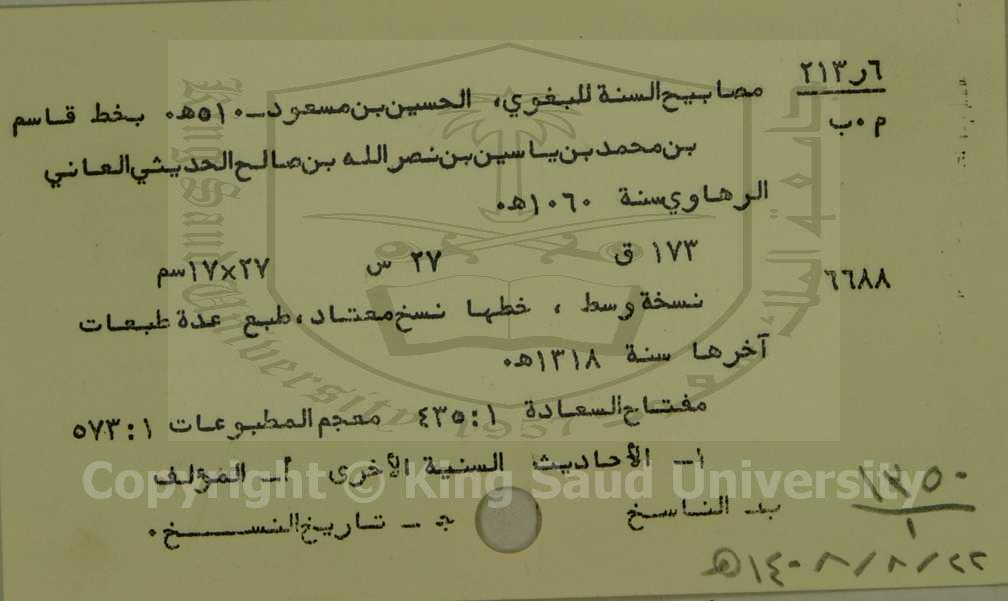 ٢١٣ر٦
م.ب
مصابيح السنة للبغوي، الحسين بن مسعود ـ ٥١٠هـ. بخط قاسم
بن محمد بن ياسين بن نصر الله بن صالح الحديثي العاني
الرهاوي سنة ١٠٦٠هـ.
٦٦٨٨
١٧٣ ق ٢٧ س ٢٧×١٧سم
نسخة وسط ، خطها نسخ معتاد، طبع عدة طبعات
آخرها سنة ١٣١٨هـ.
مفتاح السعادة ١:٤٣٥ معجم المطبوعات ١:٥٧٣
١ـ الأحاديث السنية الأخرى أ ـ المؤلف
ب ـ الناسخ ج ـ تاريخ النسخ.
١٢٥٠
١
٢٢/٨/١٤٠٨هـ
Copyright © King Saud University
King Saud University
1957
جامعة الملك سعود